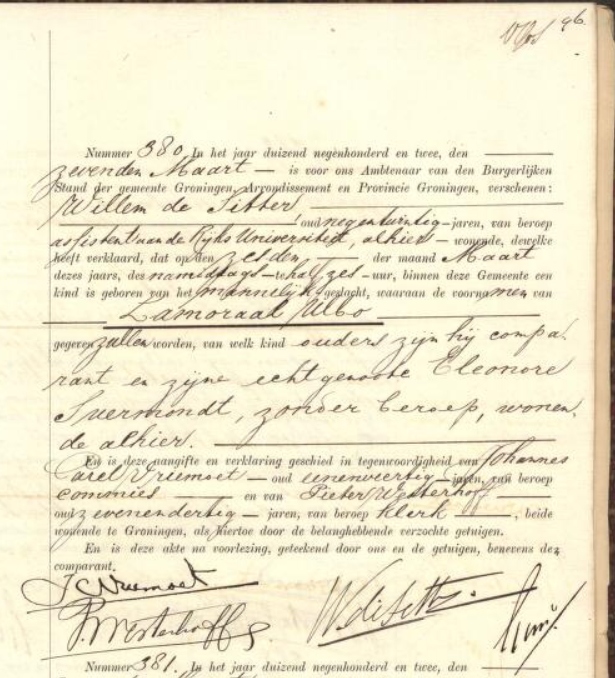 96.
Nummer 380. In het jaar duizend negenhonderd en twee, den
zevenden Maart — is voor ons Ambtenaar van den Burgerlijken
Stand der gemeente Groningen, Arrondissement en Provincie Groningen, verschenen:
Willem de Sitter
oud negentwintig jaren, van beroep
assistent aan de Rijks Universiteit, alhier — wonende, dewelke
heeft verklaard, dat op den zesden der maand Maart
dezes jaars, des namiddags te half zes uur, binnen deze Gemeente een
kind is geboren van het mannelijk geslacht, waaraan de voornamen van
Lamoraal Ulbo
gegeven zullen worden, van welk kind ouders zijn hij compa-
rant en zijne echtgenoote Eleonore
Suermondt, zonder beroep, wonen-
de alhier.
En is deze aangifte en verklaring geschied in tegenwoordigheid van Johannes
Carel Vreemoet — oud eenenveertig — jaren, van beroep
commies — en van Pieter Westerhoff —
oud zevenendertig — jaren, van beroep klerk —, beide
wonende te Groningen, als hiertoe door de belanghebbende verzochte getuigen.
En is deze akte na voorlezing, geteekend door ons en de getuigen, benevens den
comparant.
JC Vreemoet
P. Westerhoff
W. de Sitter.
Nummer 381. In het jaar duizend negenhonderd en twee, den